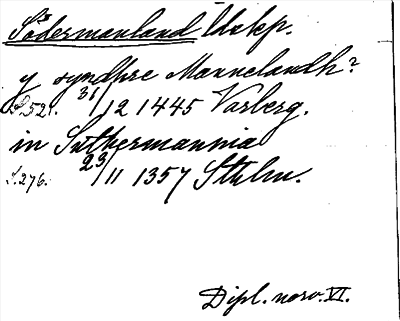 Södermanland Utskp.
y syndhre Mannelandh?
S. 52. 31/12 1445 Varberg.
in Suthermannia
S. 276. 23/11 1357 Sthlm.
Dipl. norv. VI.